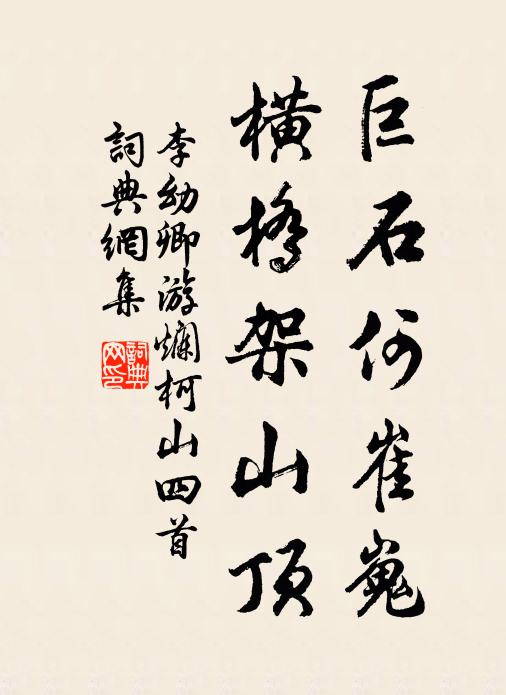 巨石何崔嵬
横橋架山頂
李幼卿游爛柯山四首
詞典網集
詞典網印